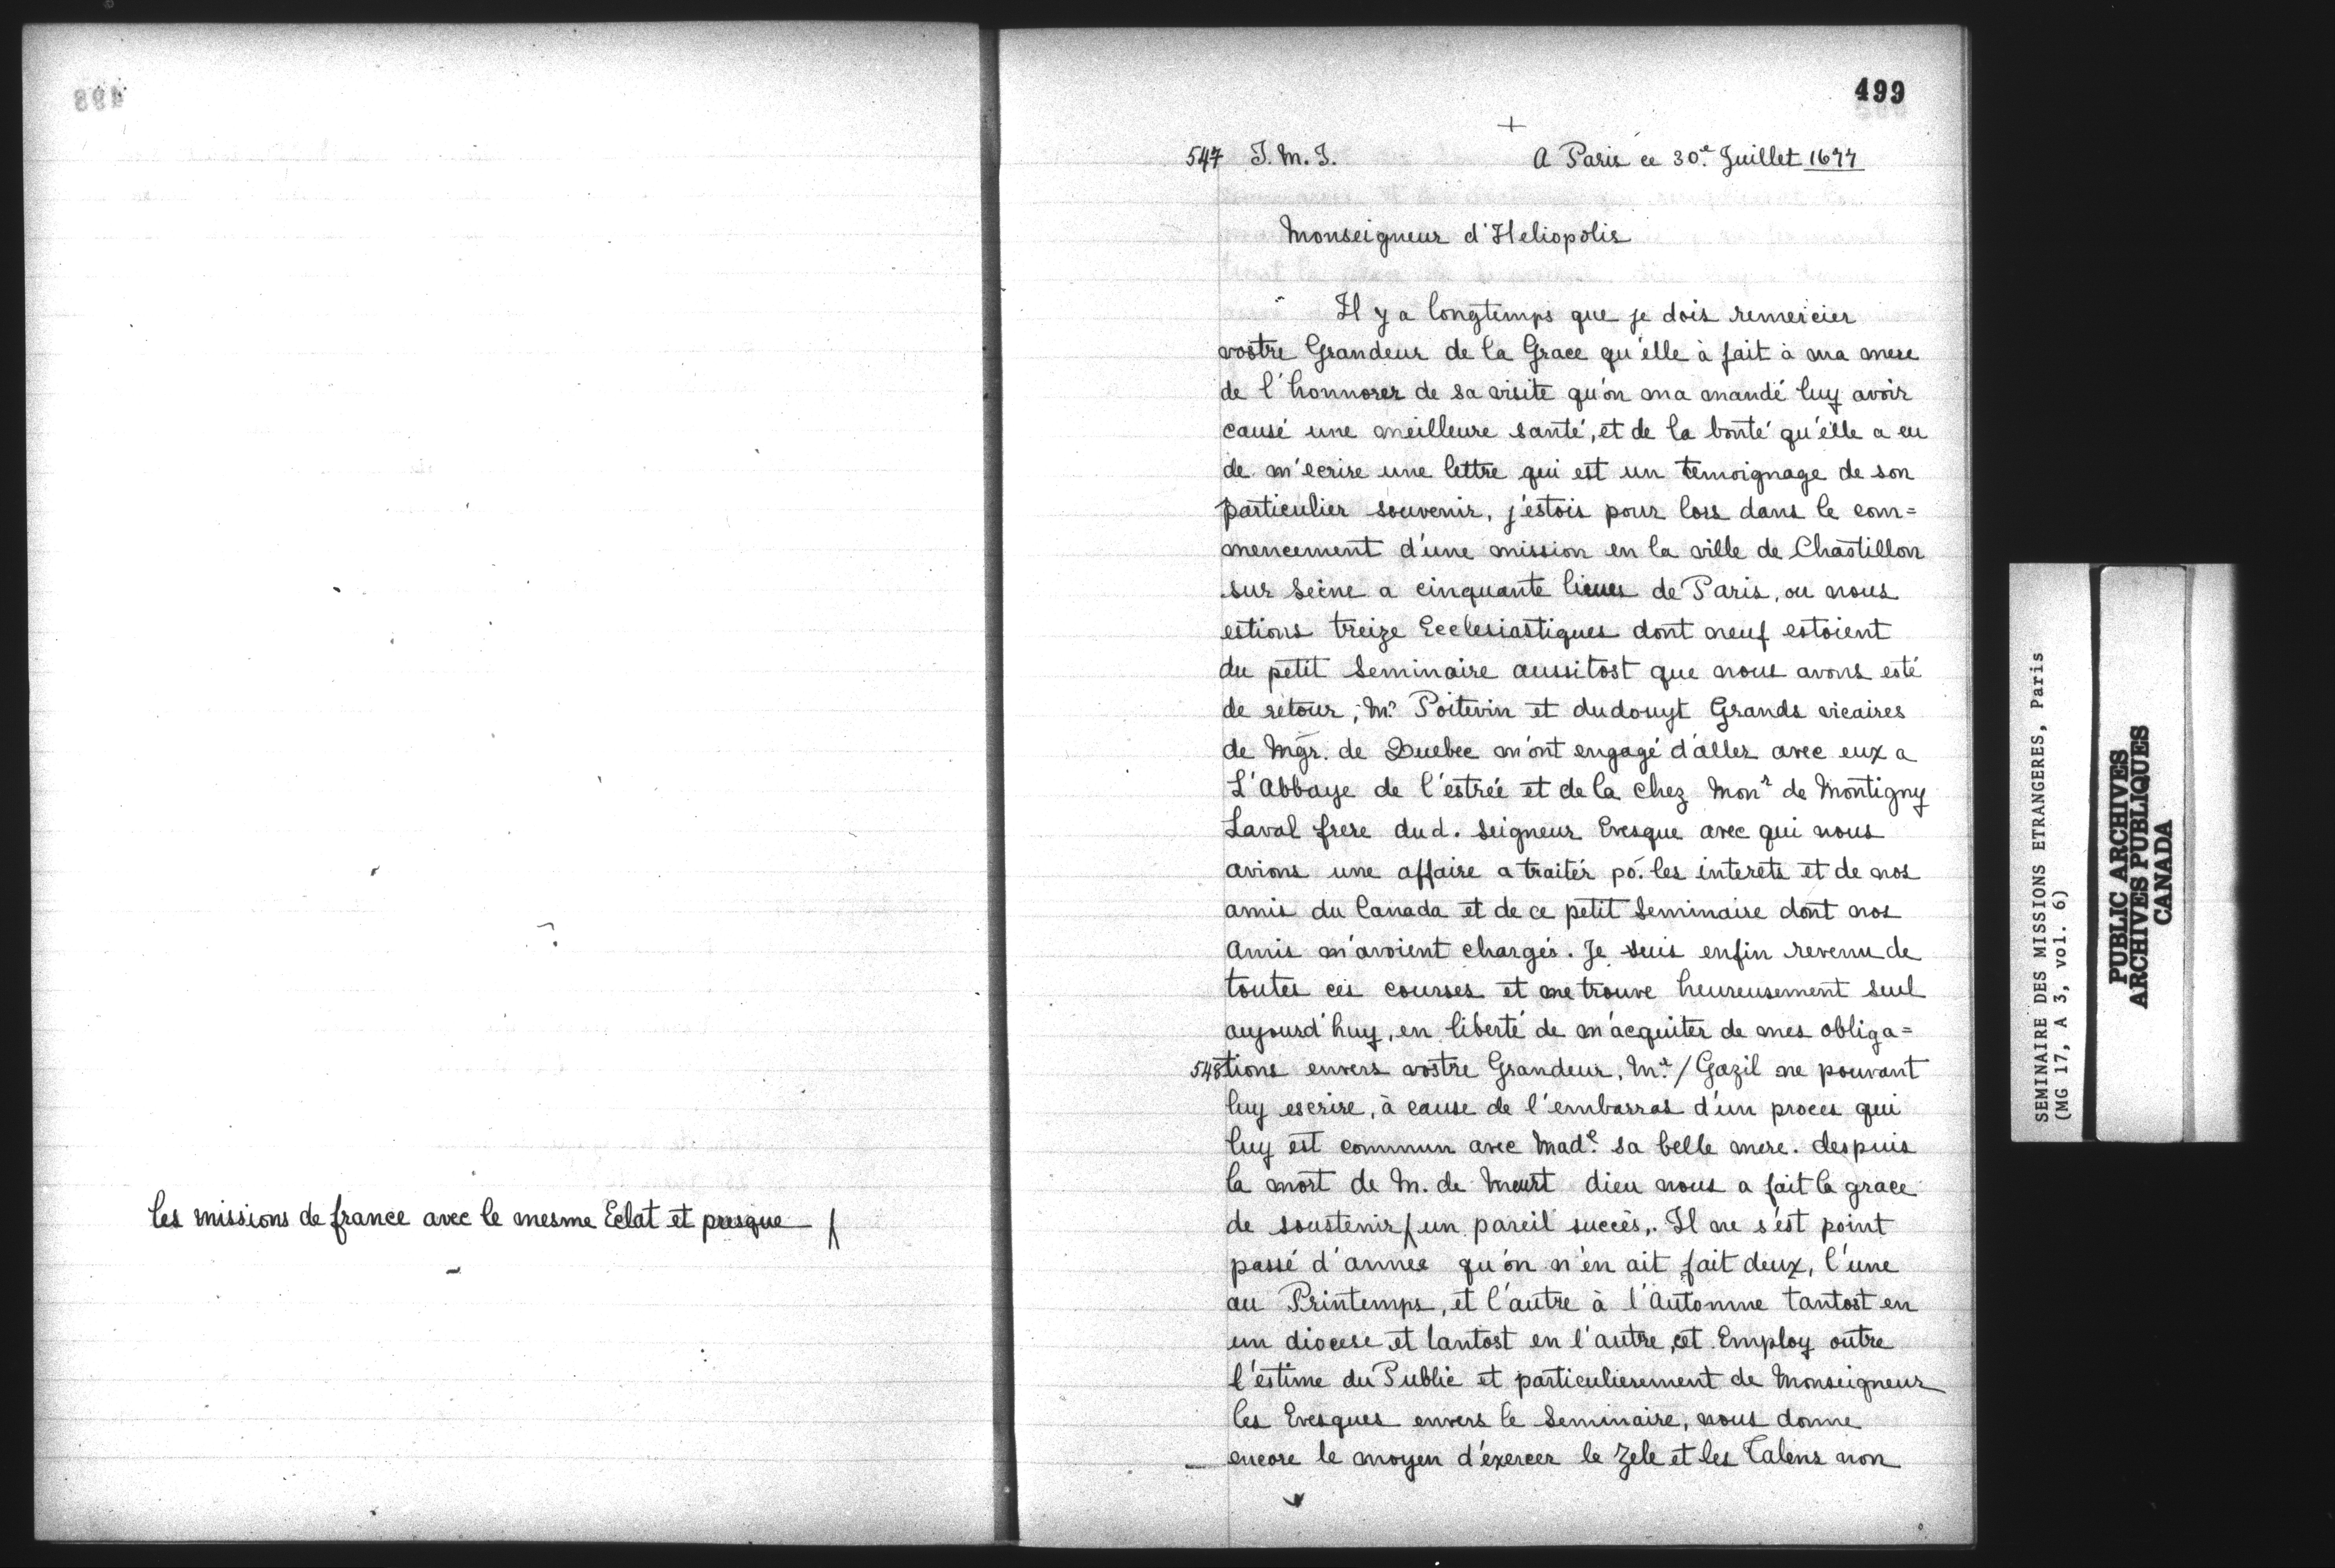 498
les missions de france avec le mesme Eclat et presque
499
+
547 J. M. J. A Paris ce 30.e Juillet 1677
Monseigneur d'Heliopolis
Il y a longtemps que je dois remercier
vostre Grandeur de la Grace qu'elle à fait à ma mere
de l'honnorer de sa visite qu'on ma mandé luy avoir
causé une meilleure santé, et de la bonté qu'elle a eu
de m'ecrire une lettre qui est un temoignage de son
particulier souvenir, j'estois pour lors dans le com=
mencement d'une mission en la ville de Chastillon
sur Seine a cinquante lieues de Paris, ou nous
estions treize Ecclesiastiques dont neuf estoient
du petit Seminaire aussitost que nous avons esté
de retour, Mrs Poitevin et dudouyt Grands vicaires
de Mgr. de Quebec m'ont engagé d'aller avec eux a
L'Abbaye de l'estrée et de la chez Monr de Montigny
Laval frere dud. Seigneur Evesque avec qui nous
avions une affaire a traiter po. les interets et de nos
amis du Canada et de ce petit Seminaire dont nos
Amis m'avoient chargés. Je suis enfin revenu de
toutes ces courses et me trouve heureusement seul
aujourd'huy, en liberté de m'acquiter de mes obliga=
548 tions envers vostre Grandeur, Mr. / Gazil ne pouvant
luy escrire, à cause de l'embarras d'un proces qui
luy est commun avec Made. sa belle mere. despuis
la mort de M. de Meurt dieu nous a fait la grace
de soustenir un pareil succès,. Il ne s'est point
passé d'année qu'on n'en ait fait deux, l'une
au Printemps, et l'autre à l'Automne tantost en
un diocese et tantost en l'autre, cet Employ outre
l'estime du Public et particulierement de Monseigneur
les Evesques envers le Seminaire, nous donne
encore le moyen d'exercer le Zele et les Talens non
SEMINAIRE DES MISSIONS ETRANGERES, Paris
(MG 17, A 3, vol. 6)
PUBLIC ARCHIVES
ARCHIVES PUBLIQUES
CANADA